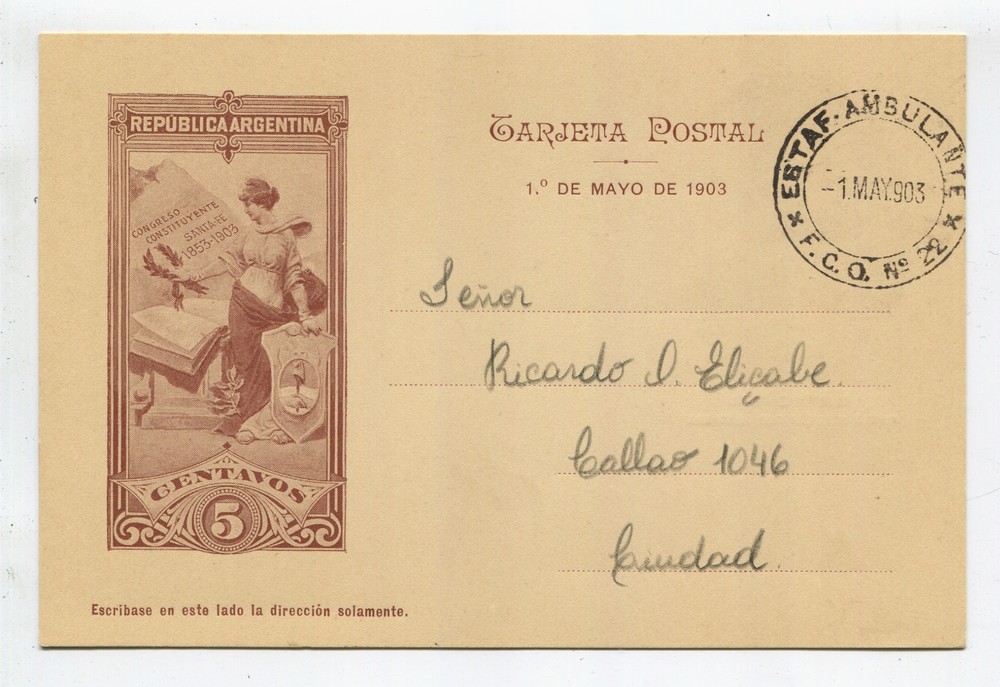 REPÚBLICA ARGENTINA
CONGRESO
CONSTITUYENTE
SANTA-FE
1853-1903
CENTAVOS
5
TARJETA POSTAL
1.º DE MAYO DE 1903
ESTAF. AMBULANTE
-1.MAY.903
F.C.O. Nº 22
Señor
Ricardo D. Eliçabe.
Callao 1046
Ciudad.
Escríbase en este lado la dirección solamente.